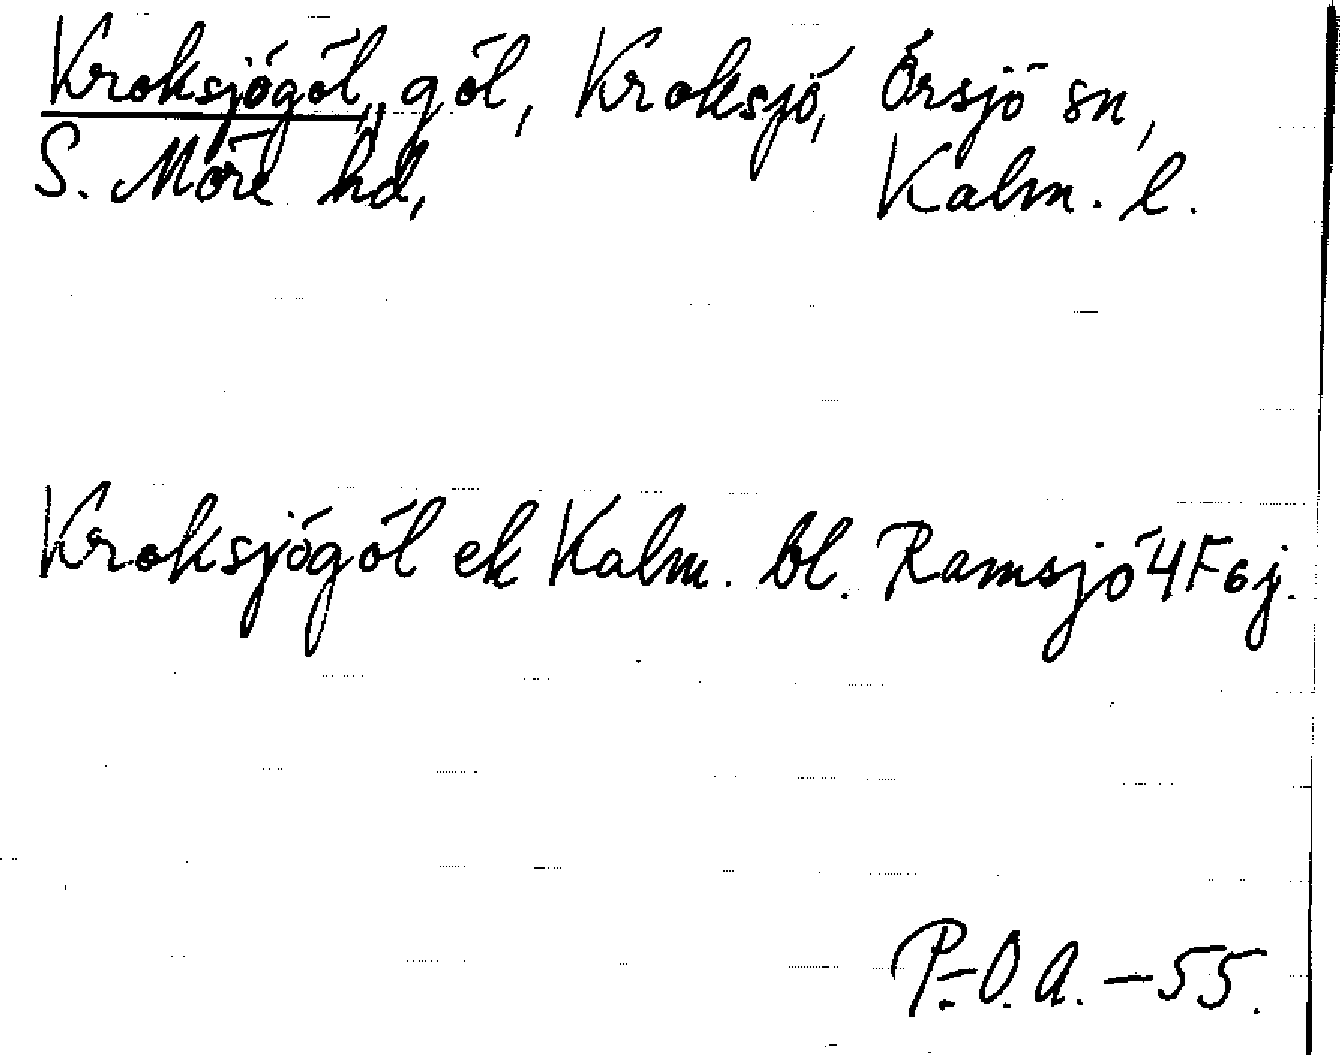 Kroksjögöl, göl, Kroksjö, Örsjö sn,
S. Möre hd, Kalm. l.
Kroksjögöl ek Kalm. bl. Ramsjö 4F6j.
P.-O.A. -55.